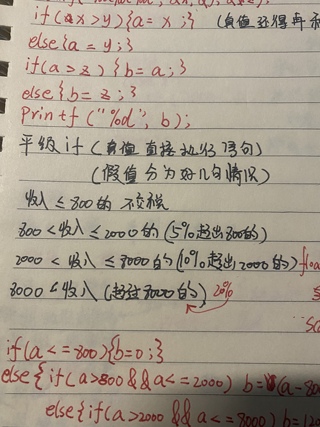 if(x>y){a=x;} (真值还得再
else{a=y;}
if(a>z){b=a;}
else{b=z;}
Printf("%d", b);
平级if(真值直接执行语句)
(假值分为好几句情况)
收入≤800的 不交税
800<收入≤2000的(5%超出800的)
2000<收入≤8000的(10%超出2000的)
8000<收入(超过8000的) 20%
if(a<=800){b=0;}
else{if(a>800&&a<=2000) b=(a-80
else{if(a>2000&&a<=8000) b=